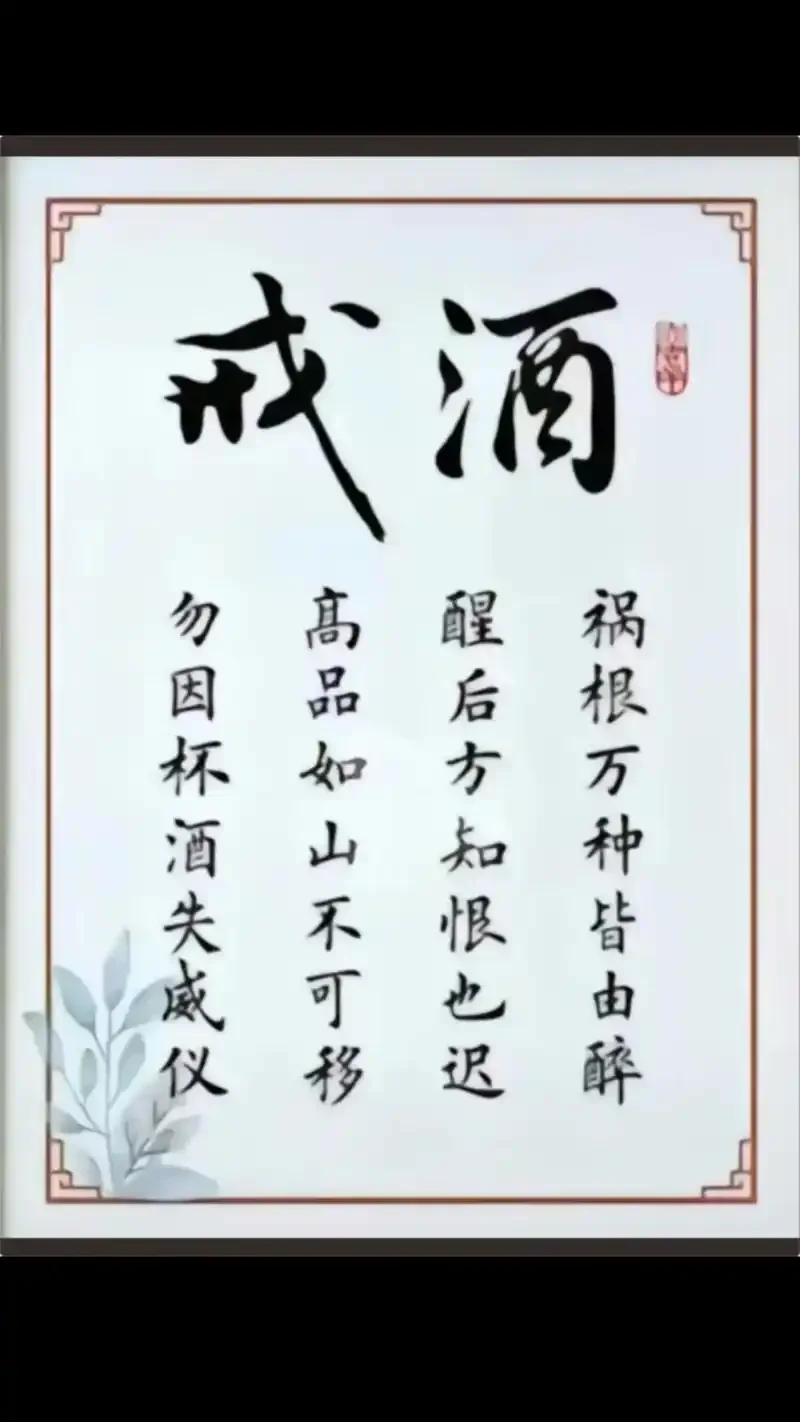 戒酒
祸根万种皆由醉
醒后方知恨也迟
高品如山不可移
勿因杯酒失威仪